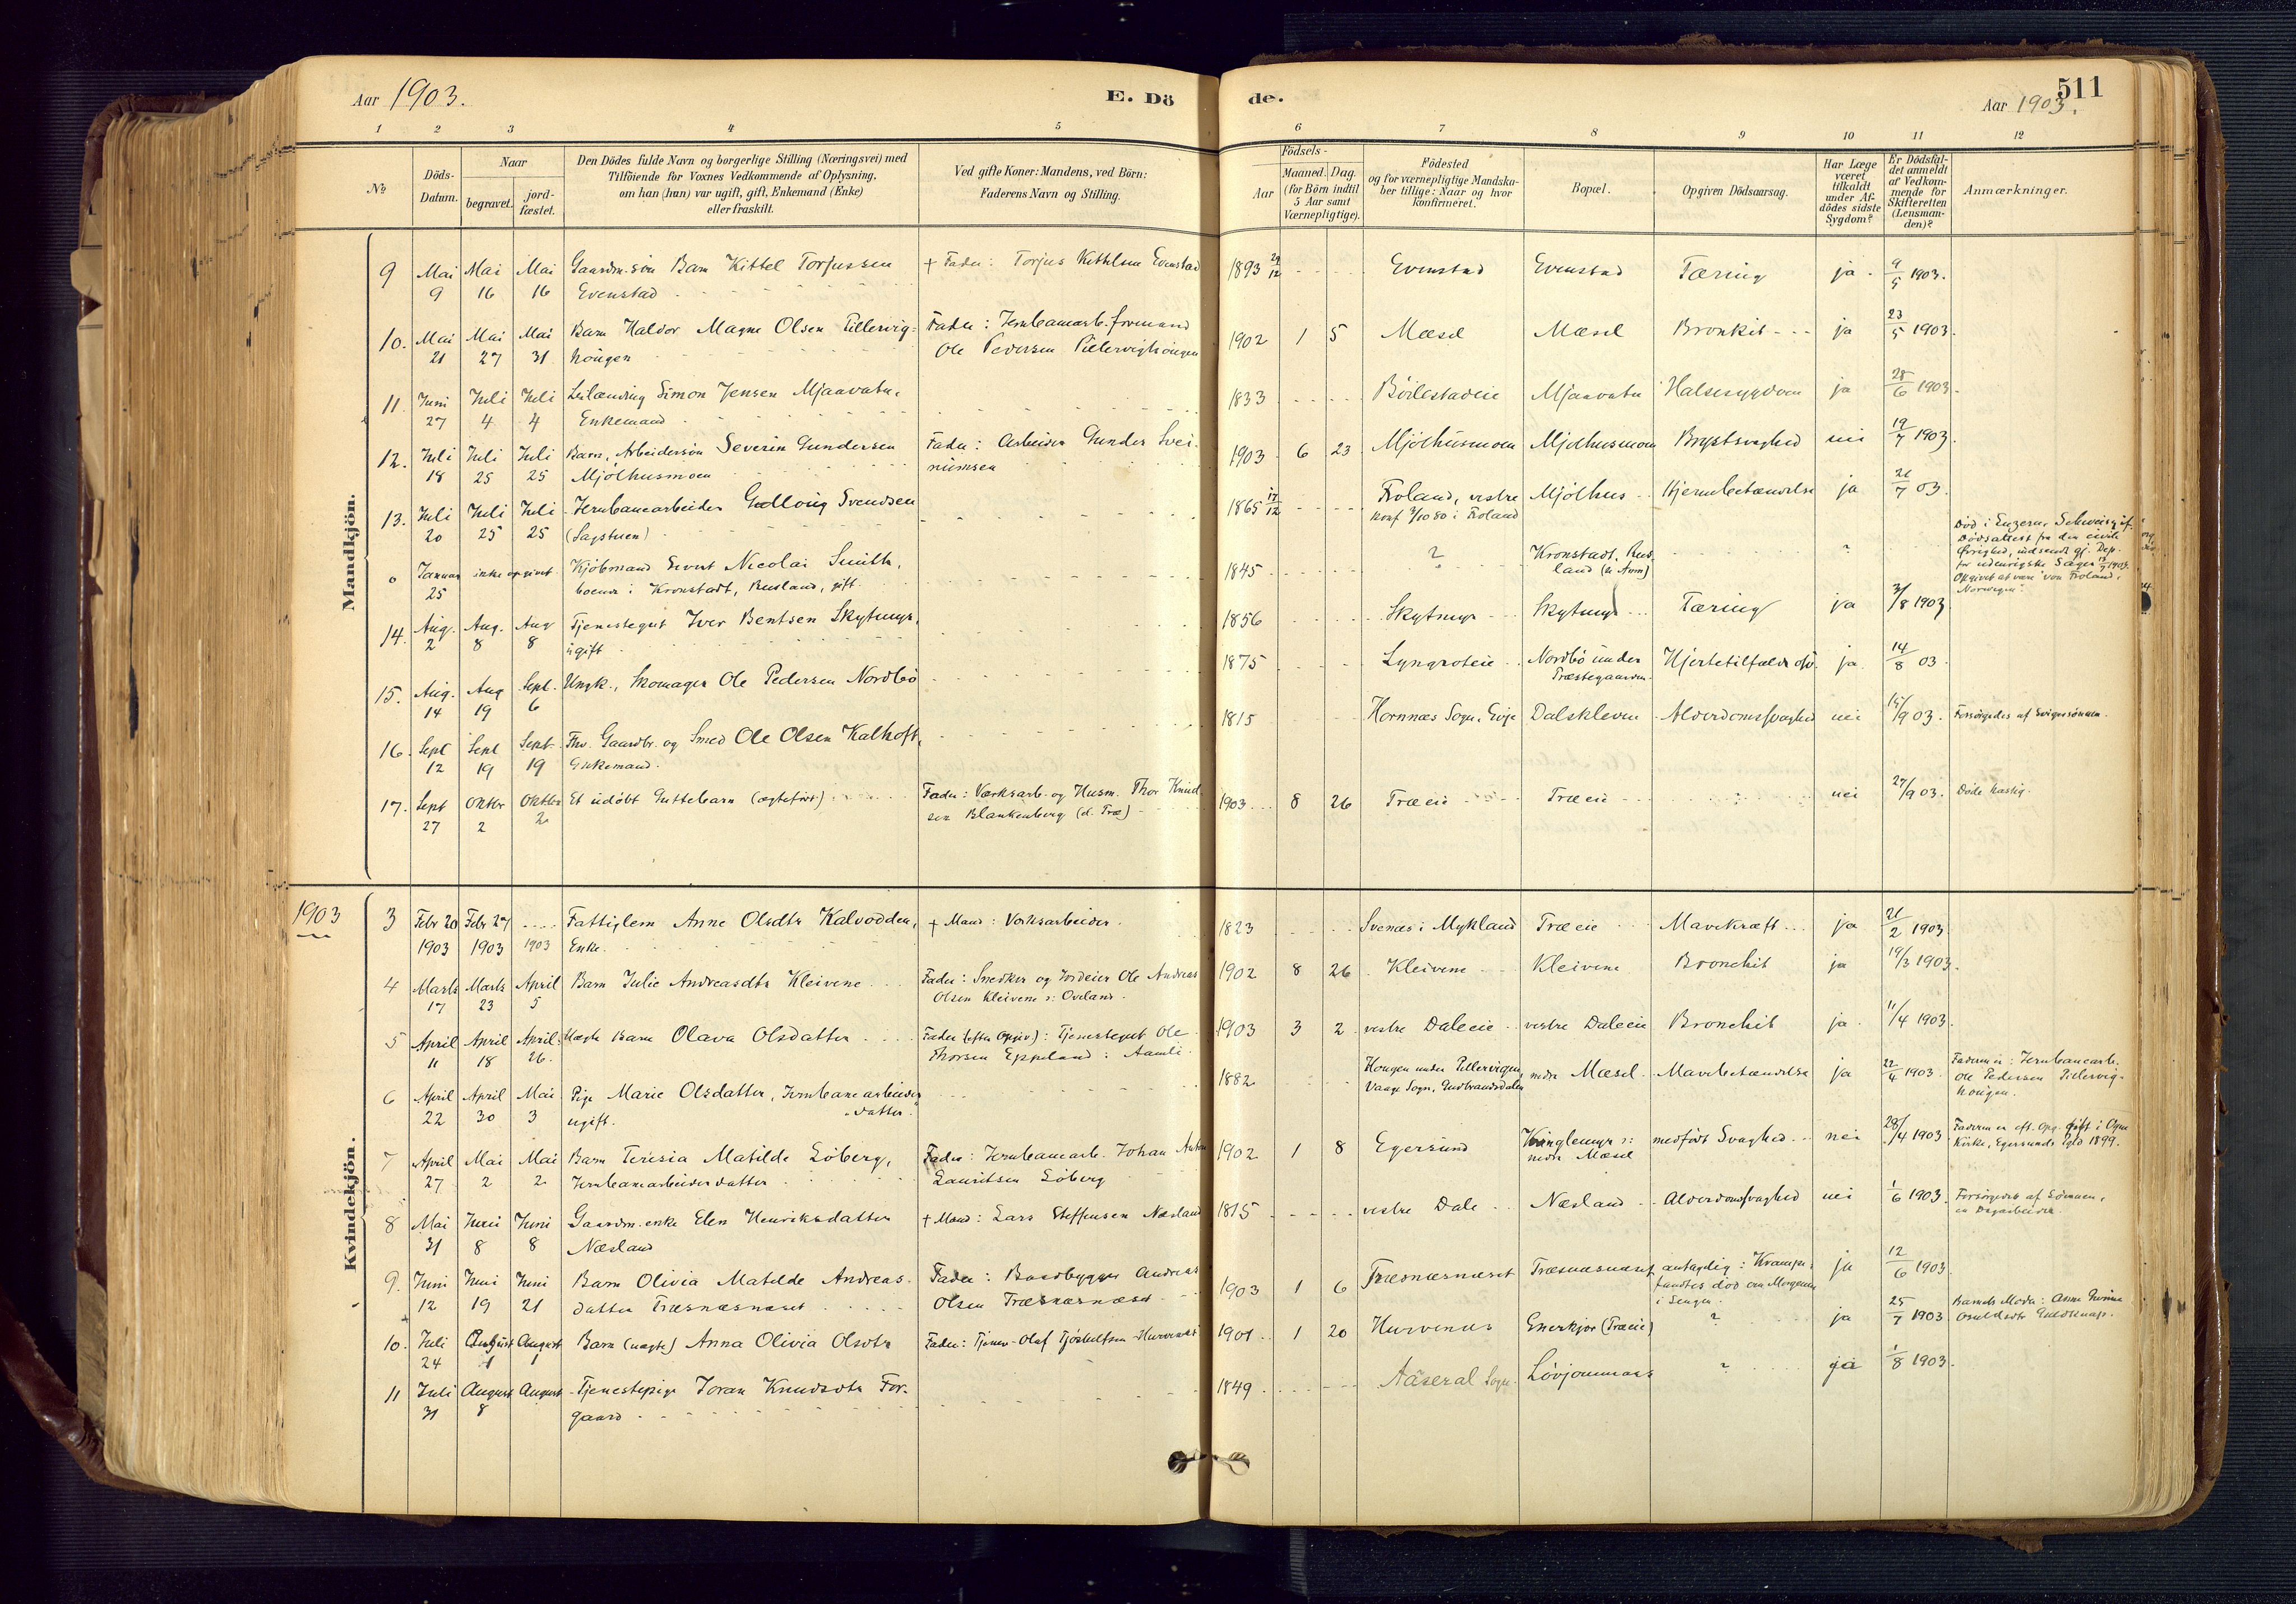 Aar 1903.
E. Dö
de.
511
Aar 1903.
1 2 3 4 5 6 7 8 9 10 11 12
No
Döds-Datum.
Naar
begravet.
jord-fæstet.
Den Dödes fulde Navn og borgerlige Stilling (Næringsvei) med
Tilföiende for Voxnes Vedkommende af Oplysning,
om han (hun) var ugift, gift, Enkemand (Enke)
eller fraskilt.
Ved gifte Koner: Mandens, ved Börn:
Faderens Navn og Stilling.
Födsels-
Aar
Maaned. Dag.
(for Börn indtil
5 Aar samt
Værnepligtige).
Födested
og for værnepligtige Mandska-
ber tillige: Naar og hvor
konfirmeret.
Bopæl.
Opgiven Dödsaarsag.
Har Læge
været
tilkaldt
under Af-
dödes sidste
Sygdom?
Er Dödsfal-
det anmeldt
af Vedkom-
mende for
Skifteretten
(Lensman-
den)?
Anmærkninger.
Mandkjön.
9 Mai Mai Mai Gaardm. sön Barn Kittel Torjussen + Fader: Torjus Kittelsen Evenstad 1893 29/12 Evenstad Evenstad Tæring ja 9/5 1903.
9 16 16 Evenstad
10. Mai Mai Mai Barn Haldor Magne Olsen Pillervig- Fader: Jernbanearb. formand 1902 1 5 Mæsel Mæsel Bronkit ja 23/5 1903.
21 27 31 hougen Ole Pedersen Pillervighougen
11. Juni Juli Juli Leilænding Simon Jensen Mjaavatn, 1833 Böilestadeie Mjaavatn Halsesygdom ja 28/6 1903
27 4 4 Enkemand
12. Juli Juli Juli Barn, Arbeidersön Severin Gundersen Fader: Arbeider Gunder Svei- 1903 6 23 Mjölhusmoen Mjölhusmoen Brystsvaghed nei 19/7 1903.
18 25 25 Mjölhusmoen numsen
13. Juli Juli Juli Jernbanearbeider Gulloug Svendsen 1865 17/12 Froland, vestre Mjölhus Hjernebetændelse ja 21/7 03.
20 25 25 (Sagstuen) Konf 3/10 80 i Froland
o Januar inke opgivet Kjöbmand Evert Nicolai Smith, 1845 ? Kronstadt, Rus- ?
25 boende i Kronstadt, Rusland, gift land (se Anm)
Död i Luzern, Schweiz if.
Dödsattest fra den civile
Övrighed, udsendt gj. Dep.
for udenrigske Sager
Opgivet at være "von Froland,
Norwegen".
14. Aug. Aug. Aug Tjenestegut Iver Bentsen Skytmyr, 1856 Skytmyr Skytmyr Tæring ja 3/8 1903
2 8 8 ugift
15. Aug. Aug Sept. Ungk., Skomager Ole Pedersen Nordbö 1875 Lyngroteie Nordbö under Hjertetilfælde ja 14/8 03.
14 19 6 Præstegaarden
16. Sept Sept Sept. Fhv. Gaardbr. og Smed Ole Olsen Kalhoft, 1815 Hornnæs Sogn, Evje Dalskleven Alderdomssvaghed nei 15/9 03. Forsörgedes af Svigersönnen.
12 19 19 Enkemand.
17. Sept Oktbr Oktbr Et udöbt Guttebarn (ægtefödt) Fader: Værksarb. og Husm. Thor Knud- 1903 8 26 Træeie Træeie nei 27/9 03. Döde hastig.
27 2 2 sen Blankenberg (d. Træ)
1903
Kvindekjön.
3 Febr 20 Febr 27 Fattiglem Anne Olsdtr Kalvodden, + Mand: Verksarbeider. 1823 Svenæs i Mykland Træeie Mavekræft ja 21/2 1903
1903 1903 1903 Enke.
4 Marts Marts April Barn Julie Andreasdtr Kleivene Fader: Snedker og Jordeier Ole Andreas 1902 8 26 Kleivene Kleivene Bronchit ja 19/3 1903.
17 23 5 Olsen Kleivene s: Oveland.
5 April April April Uægte Barn Olava Olsdatter Fader (efter Opgiv): Tjenestegut Ole 1903 3 2 vestre Daleeie vestre Daleeie Bronchit ja 11/4 1903.
11 18 26. Thorsen Eppeland i Aamli.
6 April April Mai Pige Marie Olsdatter, Jernbanearbeider- 1882 Hougen under Pillervigen, nedre Mæsel Mavebetændelse ja 22/4 1903.
22 30 3 ugift. datter. Vaage Sogn, Gudbrandsdalen
Faderen er: Jernbanearb.
Ole Pedersen Pillervig-
hougen.
7 April Mai Mai Barn Teresia Matilde Löberg, Fader: Jernbanearb. Johan Anton 1902 1 8 Egersund Kringlemyr s: medfödt Svaghed nei 28/4 1903
27 2 2 Jernbanearbeiderdatter Lauritsen Löberg nedre Mæsel
Faderen er eft. Opg. gift i Ogne
Kirke, Egersunds Pgld 1899.
8 Mai Juni Juni Gaardm. enke Elen Henriksdatter + Mand: Lars Steffensen Næsland 1815 vestre Dale Næsland Alderdomssvaghed nei 1/6 1903. Forsörgedes af Sönnen,
31 8 8 Næsland en Dagarbeider.
9. Juni Juni Juni Barn Olivia Matilde Andreas- Fader: Baadbygger Andreas 1903 1 6 Træsnæsnæset Træsnæsnæset antagelig: Krampe; ja 12/6 1903.
12 19 21 datter Træsnæsnæset Olsen Træsnæsnæset fandtes död om Morgenen
i Sengen.
10. Juli August August Barn (uægte) Anna Olivia Olsdtr Fader: Tjener Olaf Tjöstulfsen Hurvenæs 1901 1 20 Hurvenes Enerkjær (Træeie) ? ja 25/7 1903
24 1 1
Barnets Moder: Anne
11 Juli August August Tjenestepige Joran Knudsdtr For- 1849 Aaseral Sogn Lövjommaas ? ja 1/8 1903.
31 8 gaard